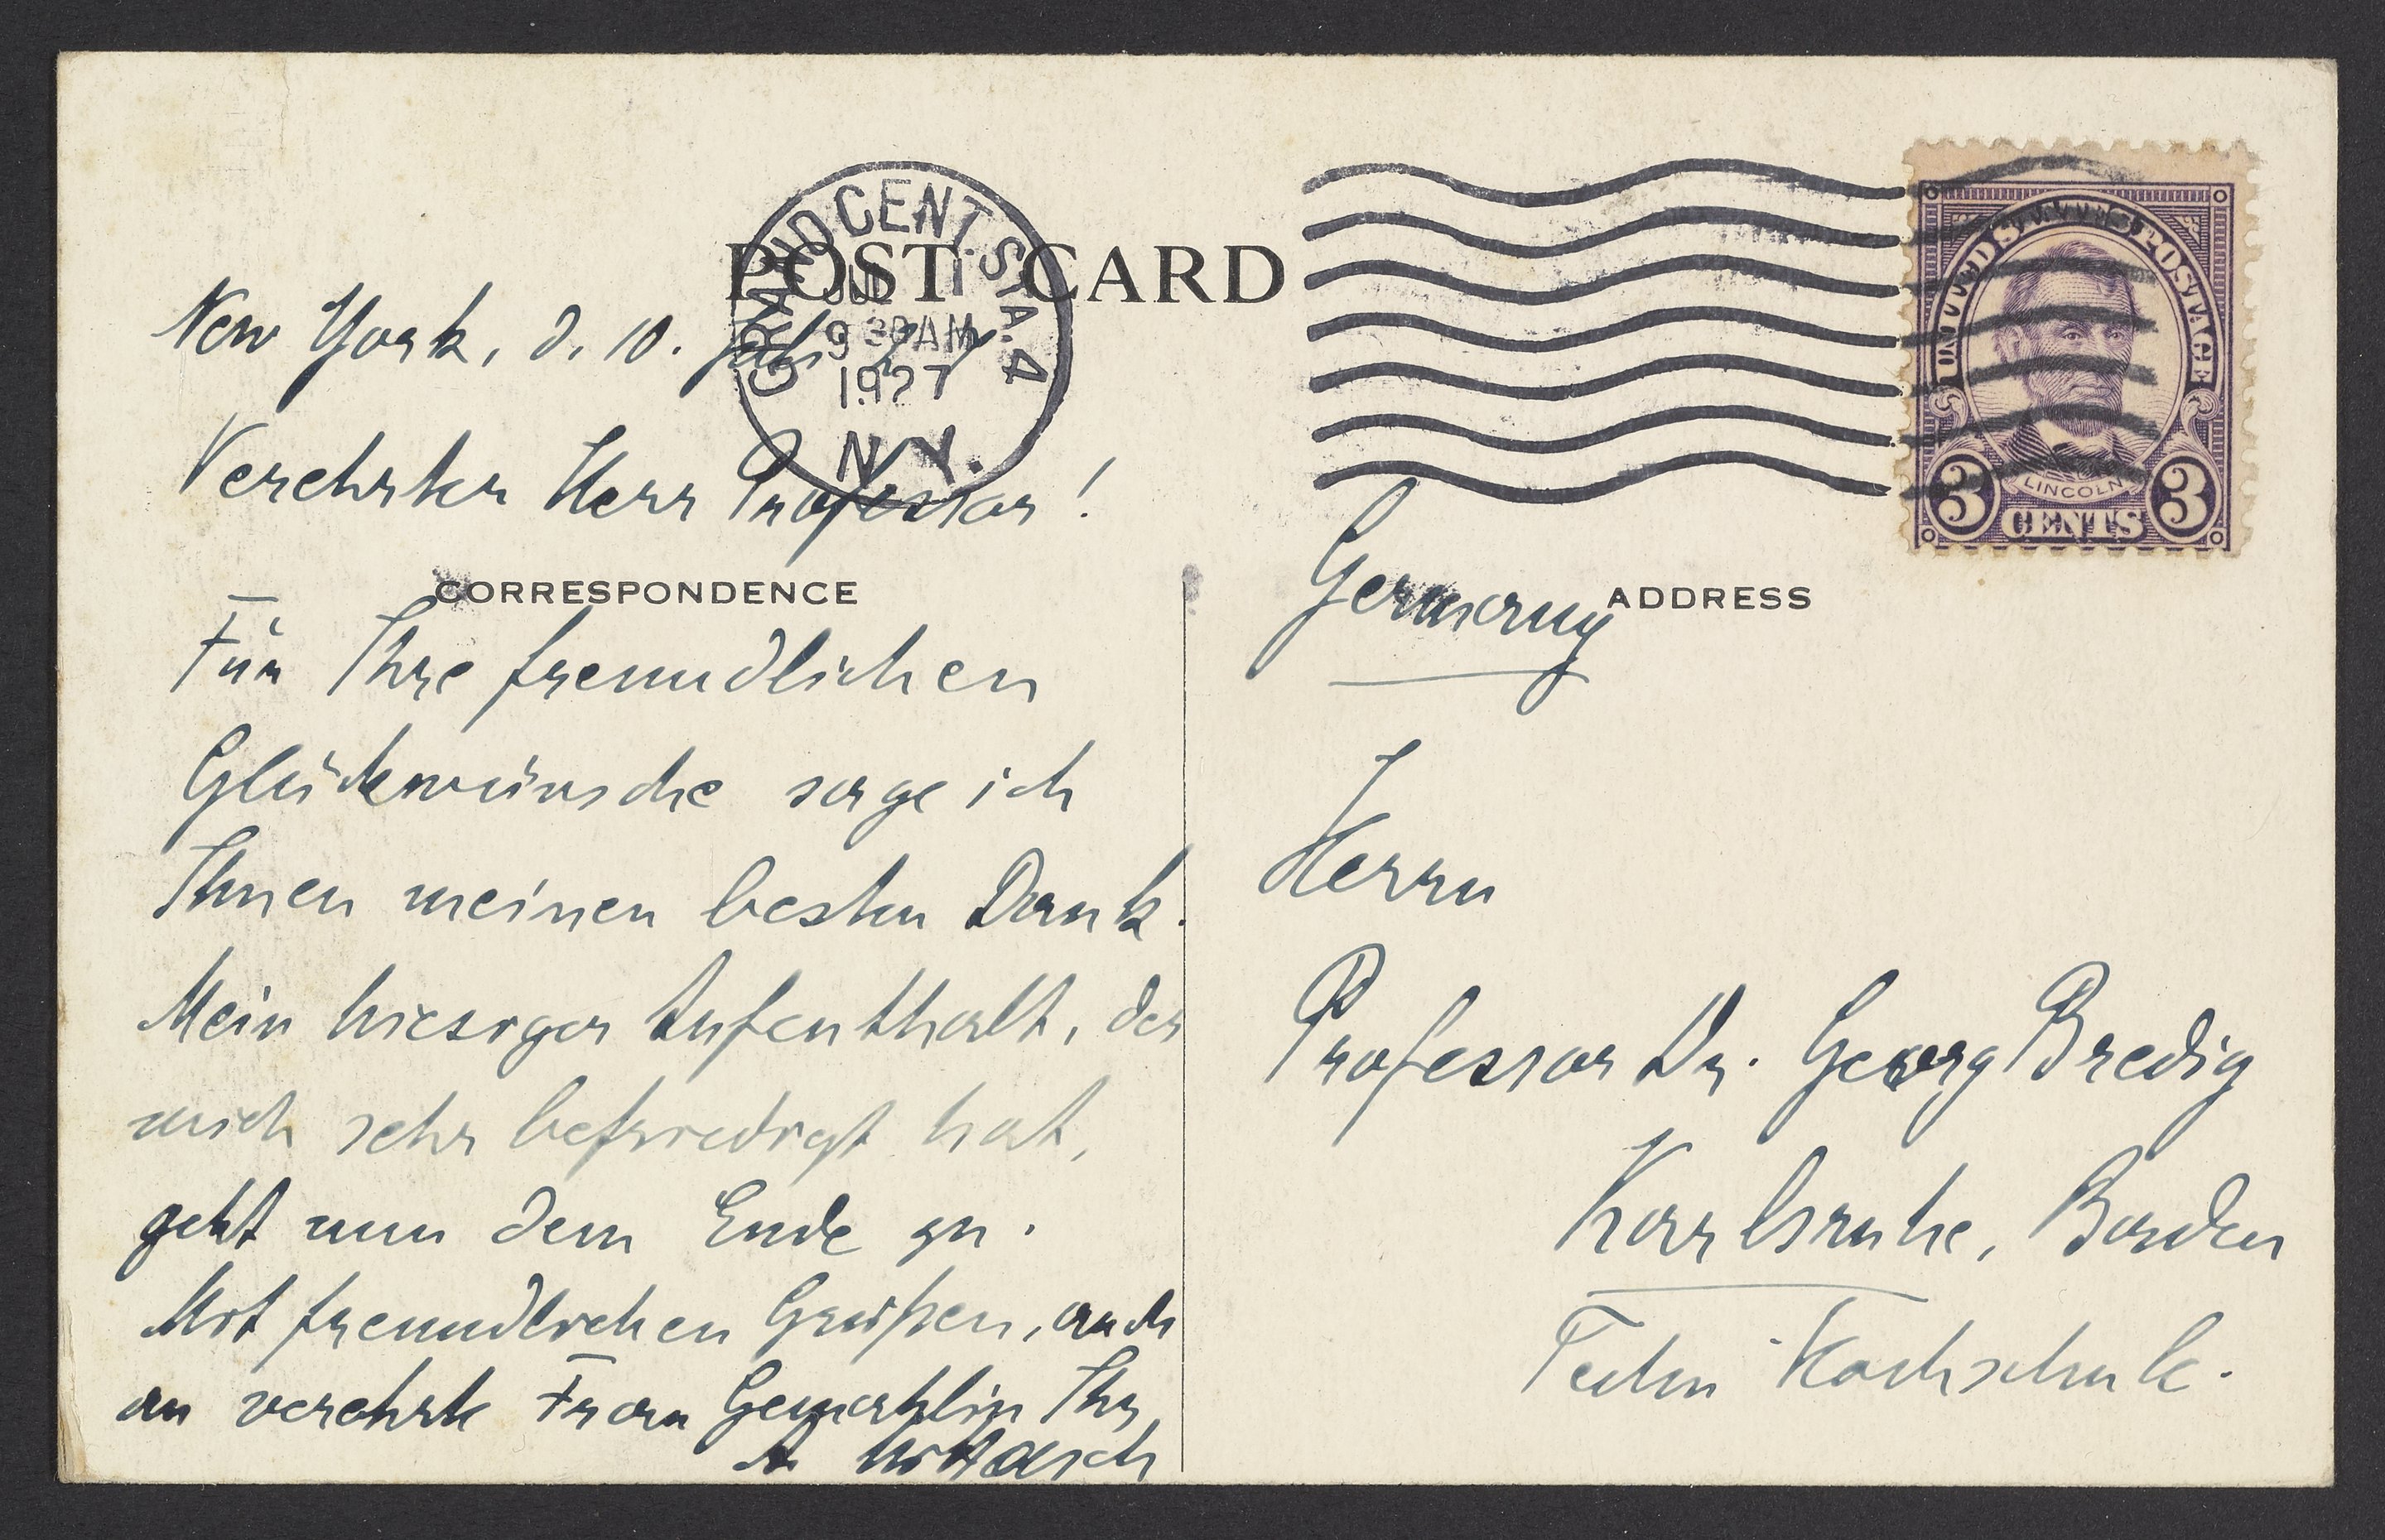 POST CARD
GRAND CENT. STA. 4
JUL 11
9 30 AM
1927
N.Y.
UNITED STATES POSTAGE
LINCOLN
3 CENTS 3
New York, d. 10. Juli 27
Verehrter Herr Professor!
CORRESPONDENCE
Für Ihre freundlichen
Glückwünsche sage ich
Ihnen meinen besten Dank.
Mein hiesiger Aufenthalt, der
mich sehr befriedigt hat,
geht nun dem Ende zu.
Mit freundlichen Grüßen, auch
an verehrte Frau Gemahlin Ihr
A Mittasch
ADDRESS
Germany
Herrn
Professor Dr. Georg Bredig
Karlsruhe, Baden
Techn Hochschule.